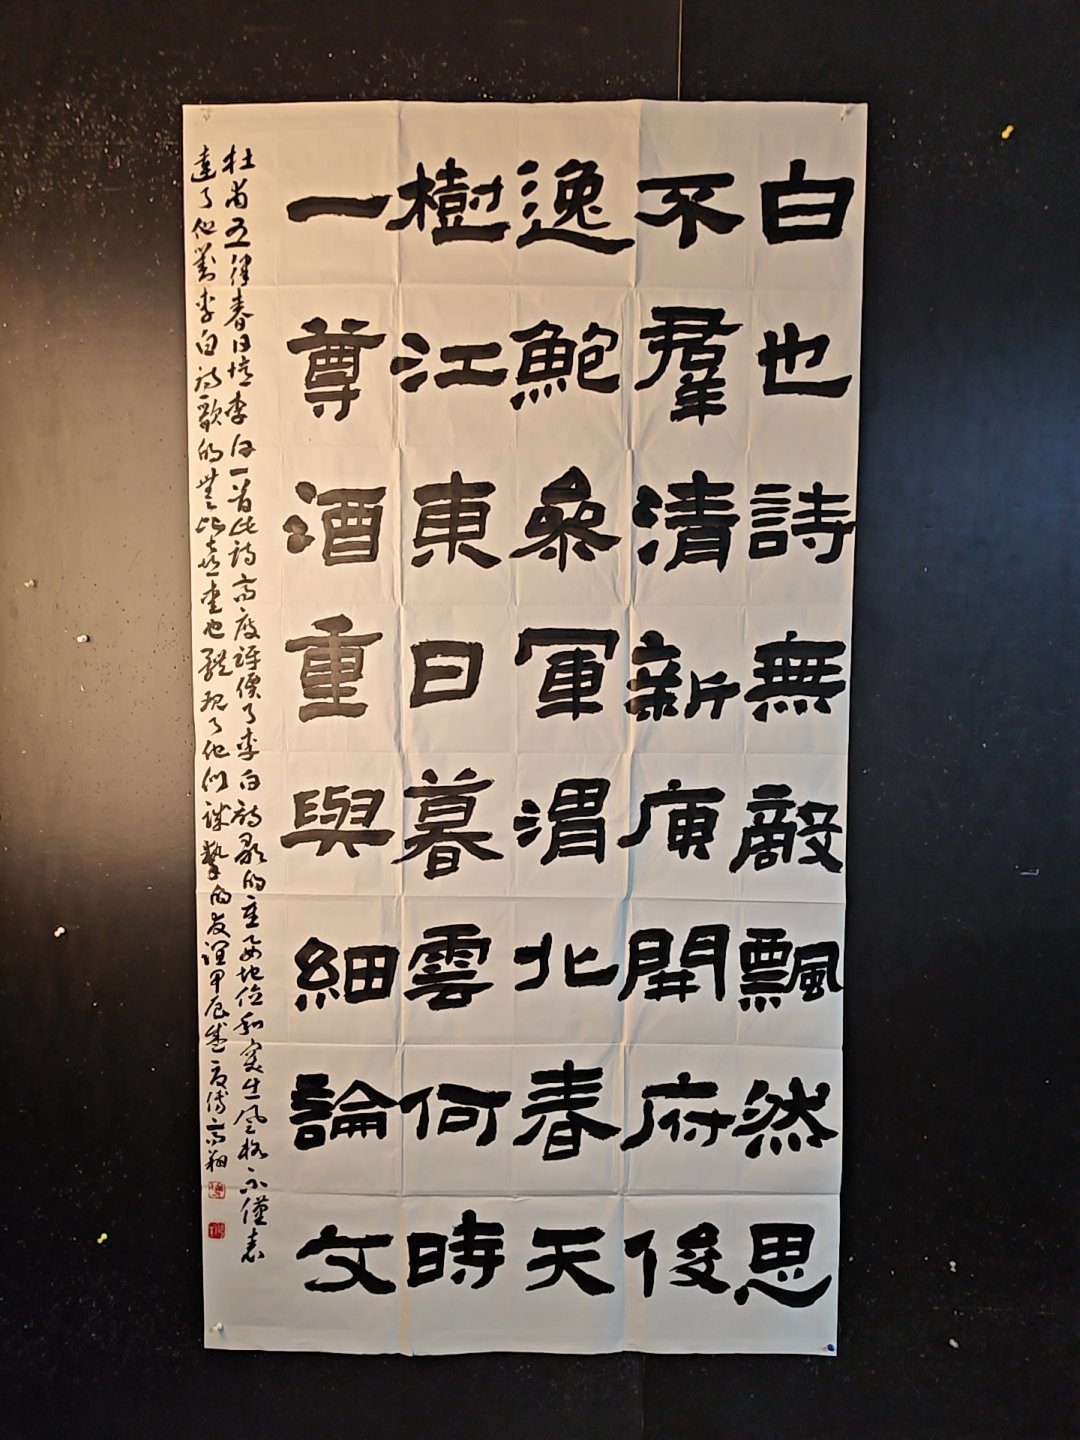 白也詩無敵飄然思
不羣清新庾開府俊
逸鮑參軍渭北春天
樹江東日暮雲何時
一尊酒重與細論文
杜甫五律春日憶李白一首此詩高度評價了李白詩歌的重要地位和突出風格不僅表
達了他對李白詩歌的無比喜愛也體現了他們誠摯的友誼甲辰盛夏傅高翔